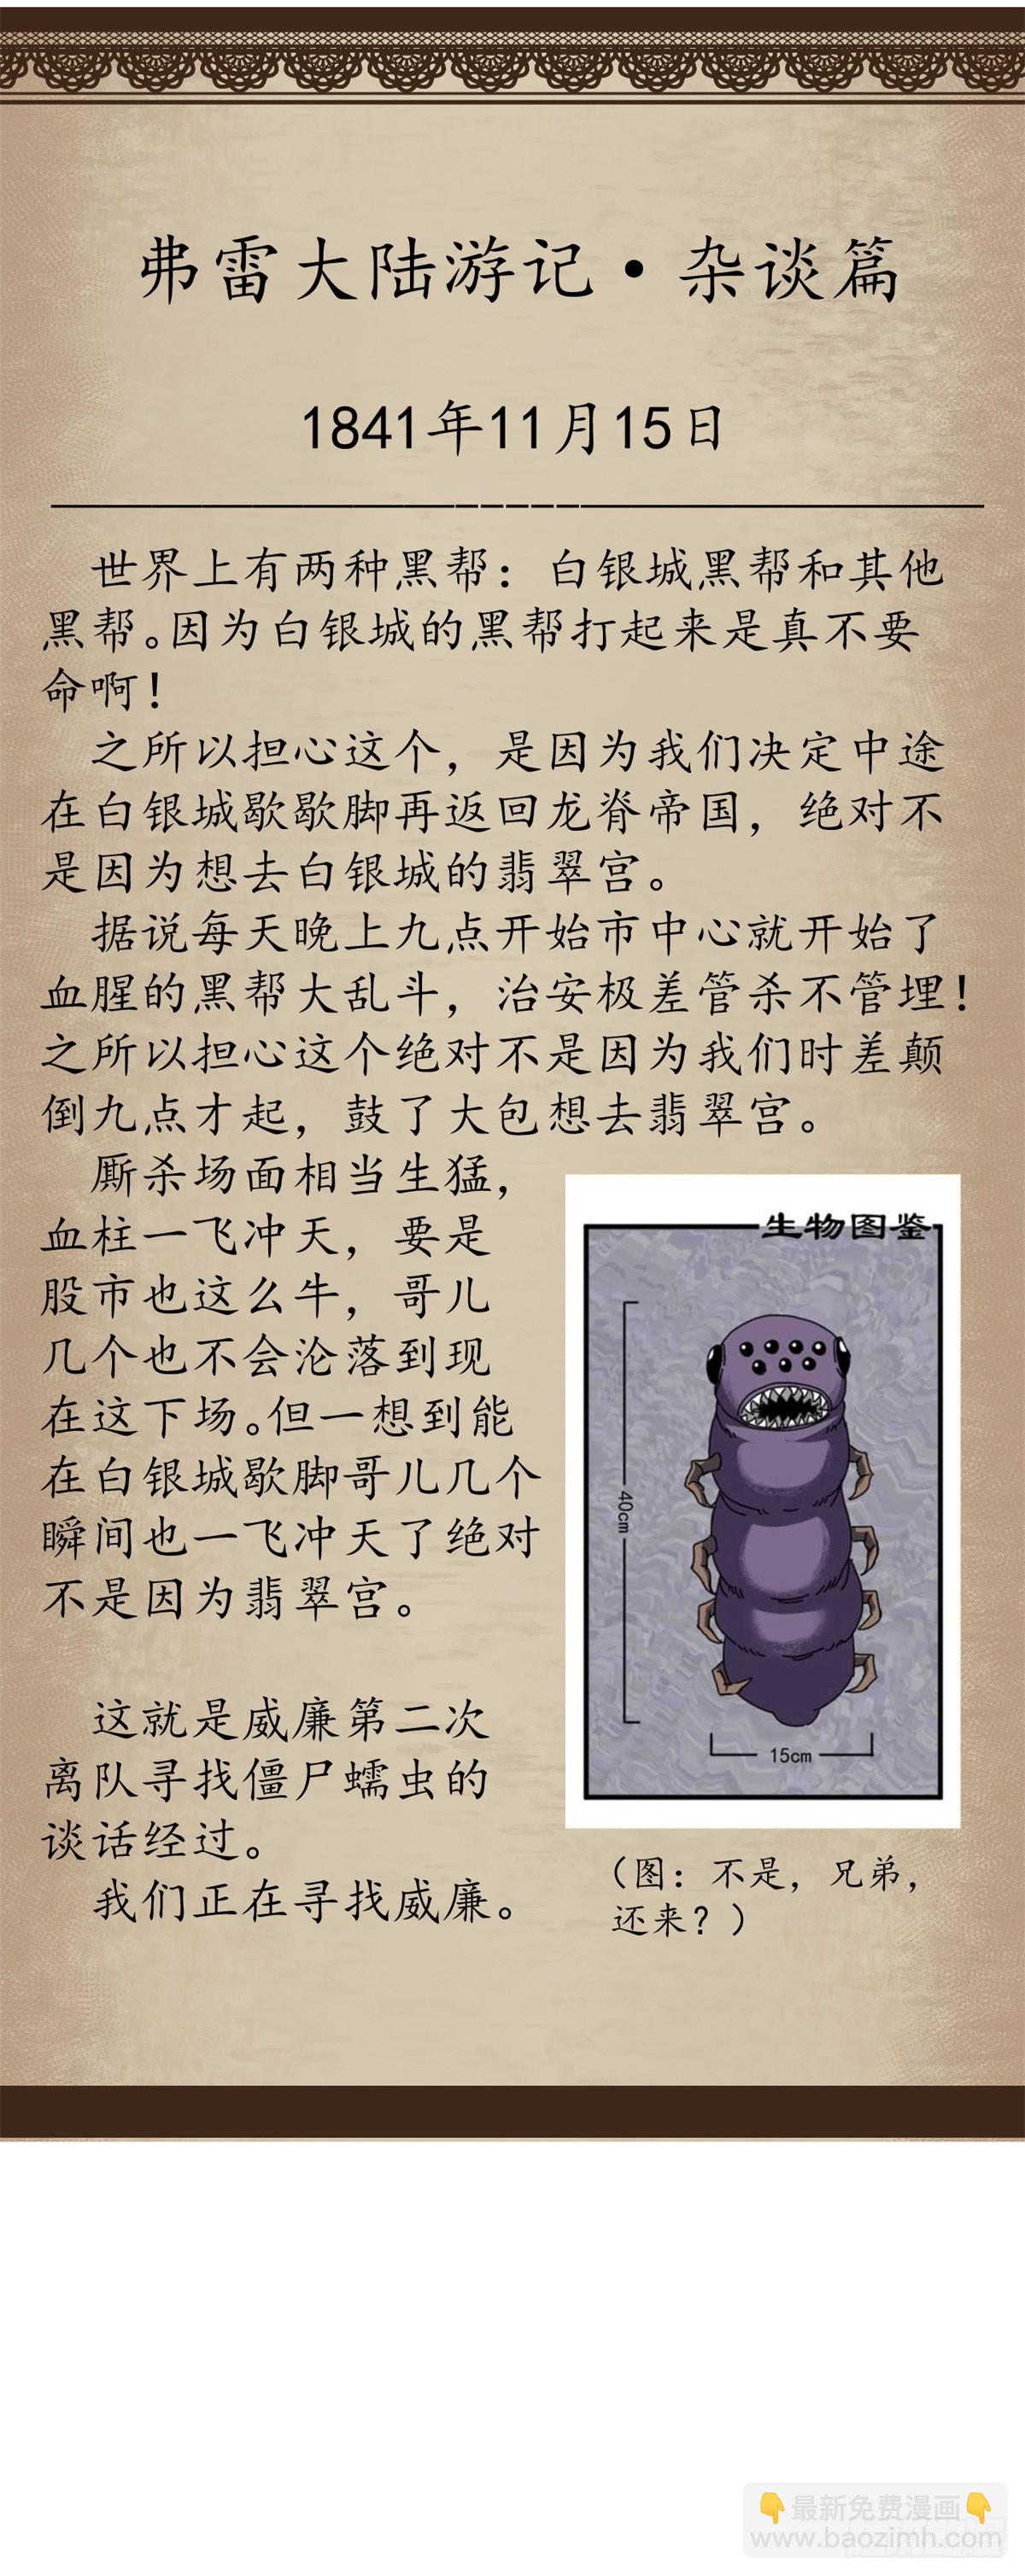 弗雷大陆游记·杂谈篇
1841年11月15日
世界上有两种黑帮：白银城黑帮和其他
黑帮。因为白银城的黑帮打起来是真不要
命啊！
之所以担心这个，是因为我们决定中途
在白银城歇歇脚再返回龙脊帝国，绝对不
是因为想去白银城的翡翠宫。
据说每天晚上九点开始市中心就开始了
血腥的黑帮大乱斗，治安极差管杀不管埋！
之所以担心这个绝对不是因为我们时差颠
倒九点才起，鼓了大包想去翡翠宫。
厮杀场面相当生猛，
血柱一飞冲天，要是
股市也这么牛，哥儿
几个也不会沦落到现
在这下场。但一想到能
在白银城歇脚哥儿几个
瞬间也一飞冲天了绝对
不是因为翡翠宫。
这就是威廉第二次
离队寻找僵尸蠕虫的
谈话经过。
我们正在寻找威廉。
生物图鉴
40cm
15cm
（图：不是，兄弟，
还来？）
👇最新免费漫画👇
www.baozimh.com